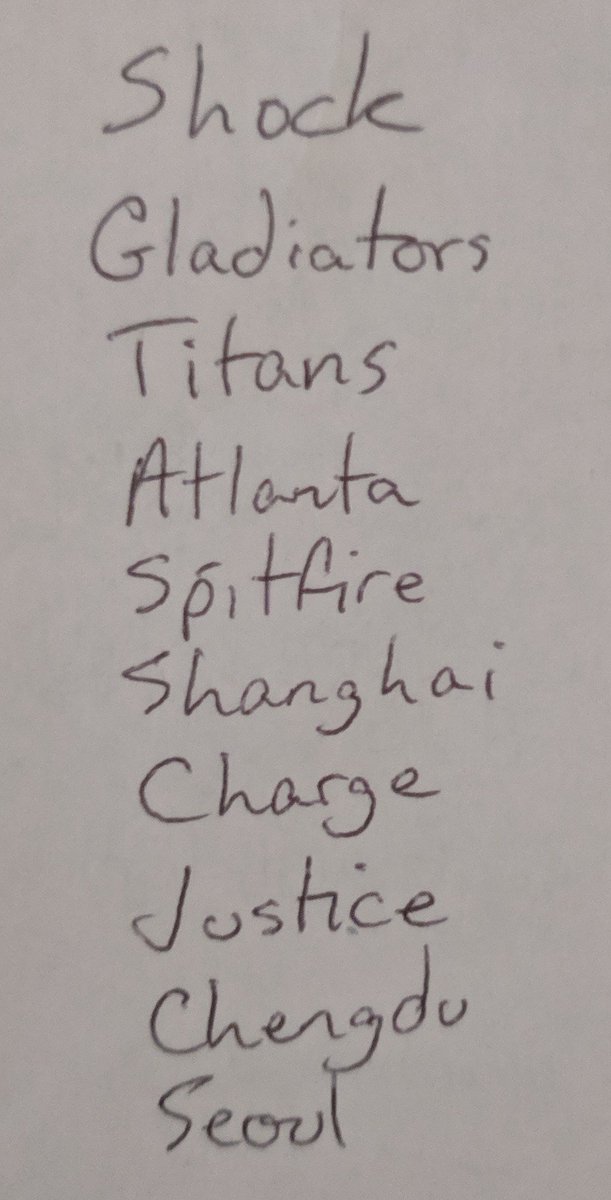 Shock
Gladiators
Titans
Atlanta
Spitfire
Shanghai
Charge
Justice
Chengdu
Seoul